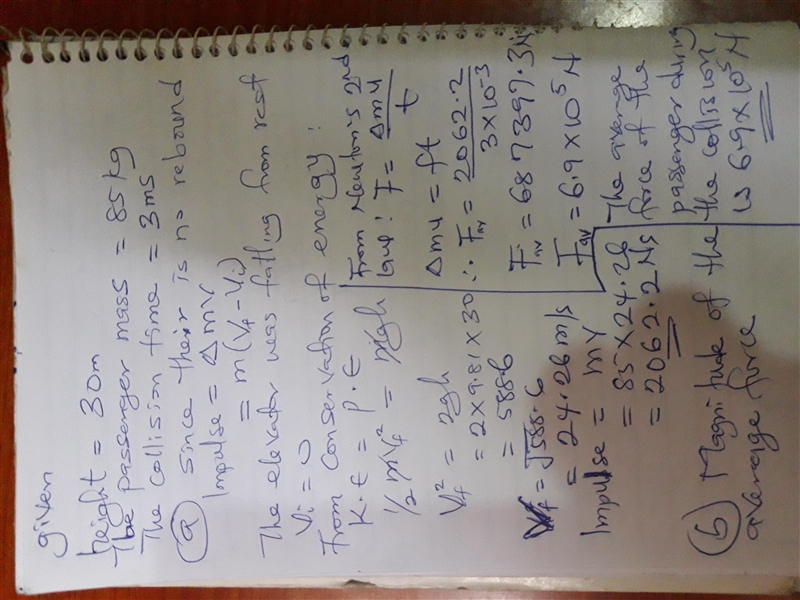 given
height = 30m
The passenger mass = 85kg
The collision time = 3ms
(a) Since their is no rebound
Impulse = Δmv
= m(Vf - Vi)
The elevator was falling from rest
Vi = 0
From conservation of energy:
K.E = P.E
½mVf² = mgh
Vf² = 2gh
= 2×9.81×30
= 588.6
Vf = √588.6
= 24.26m/s
Impulse = mv
= 85×24.26
= 2062.2 Ns
(b) Magnitude of the
average force
From Newton's 2nd
law: F = Δmu/t
Δmu = ft
∴ Fav = 2062.2/3×10⁻³
Fav = 687397.3N
Fav = 6.9×10⁵N
The average
force of the
passenger during
the collision
is 6.9×10⁵N